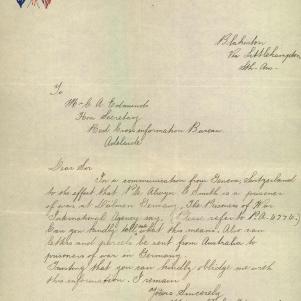 Blakiston
Via Littlehampton
Sth. Aus.
To
Mr C. A. Edmunds
Hon Secretary
Red Cross Information Bureau
Adelaide
Dear Sir
In a communication from Geneva, Switzerland
to the effect that Pte. Alwyn Smith is a prisoner
of war at Dulmen Germany, The Prisoners of War
International Agency say, (Please refer to P.A. 4774.)
Can you kindly tell me what this means. Also can
letters and parcels be sent from Australia to
prisoners of war in Germany.
Trusting that you can kindly oblige me with
this information. I remain
Yours Sincerely